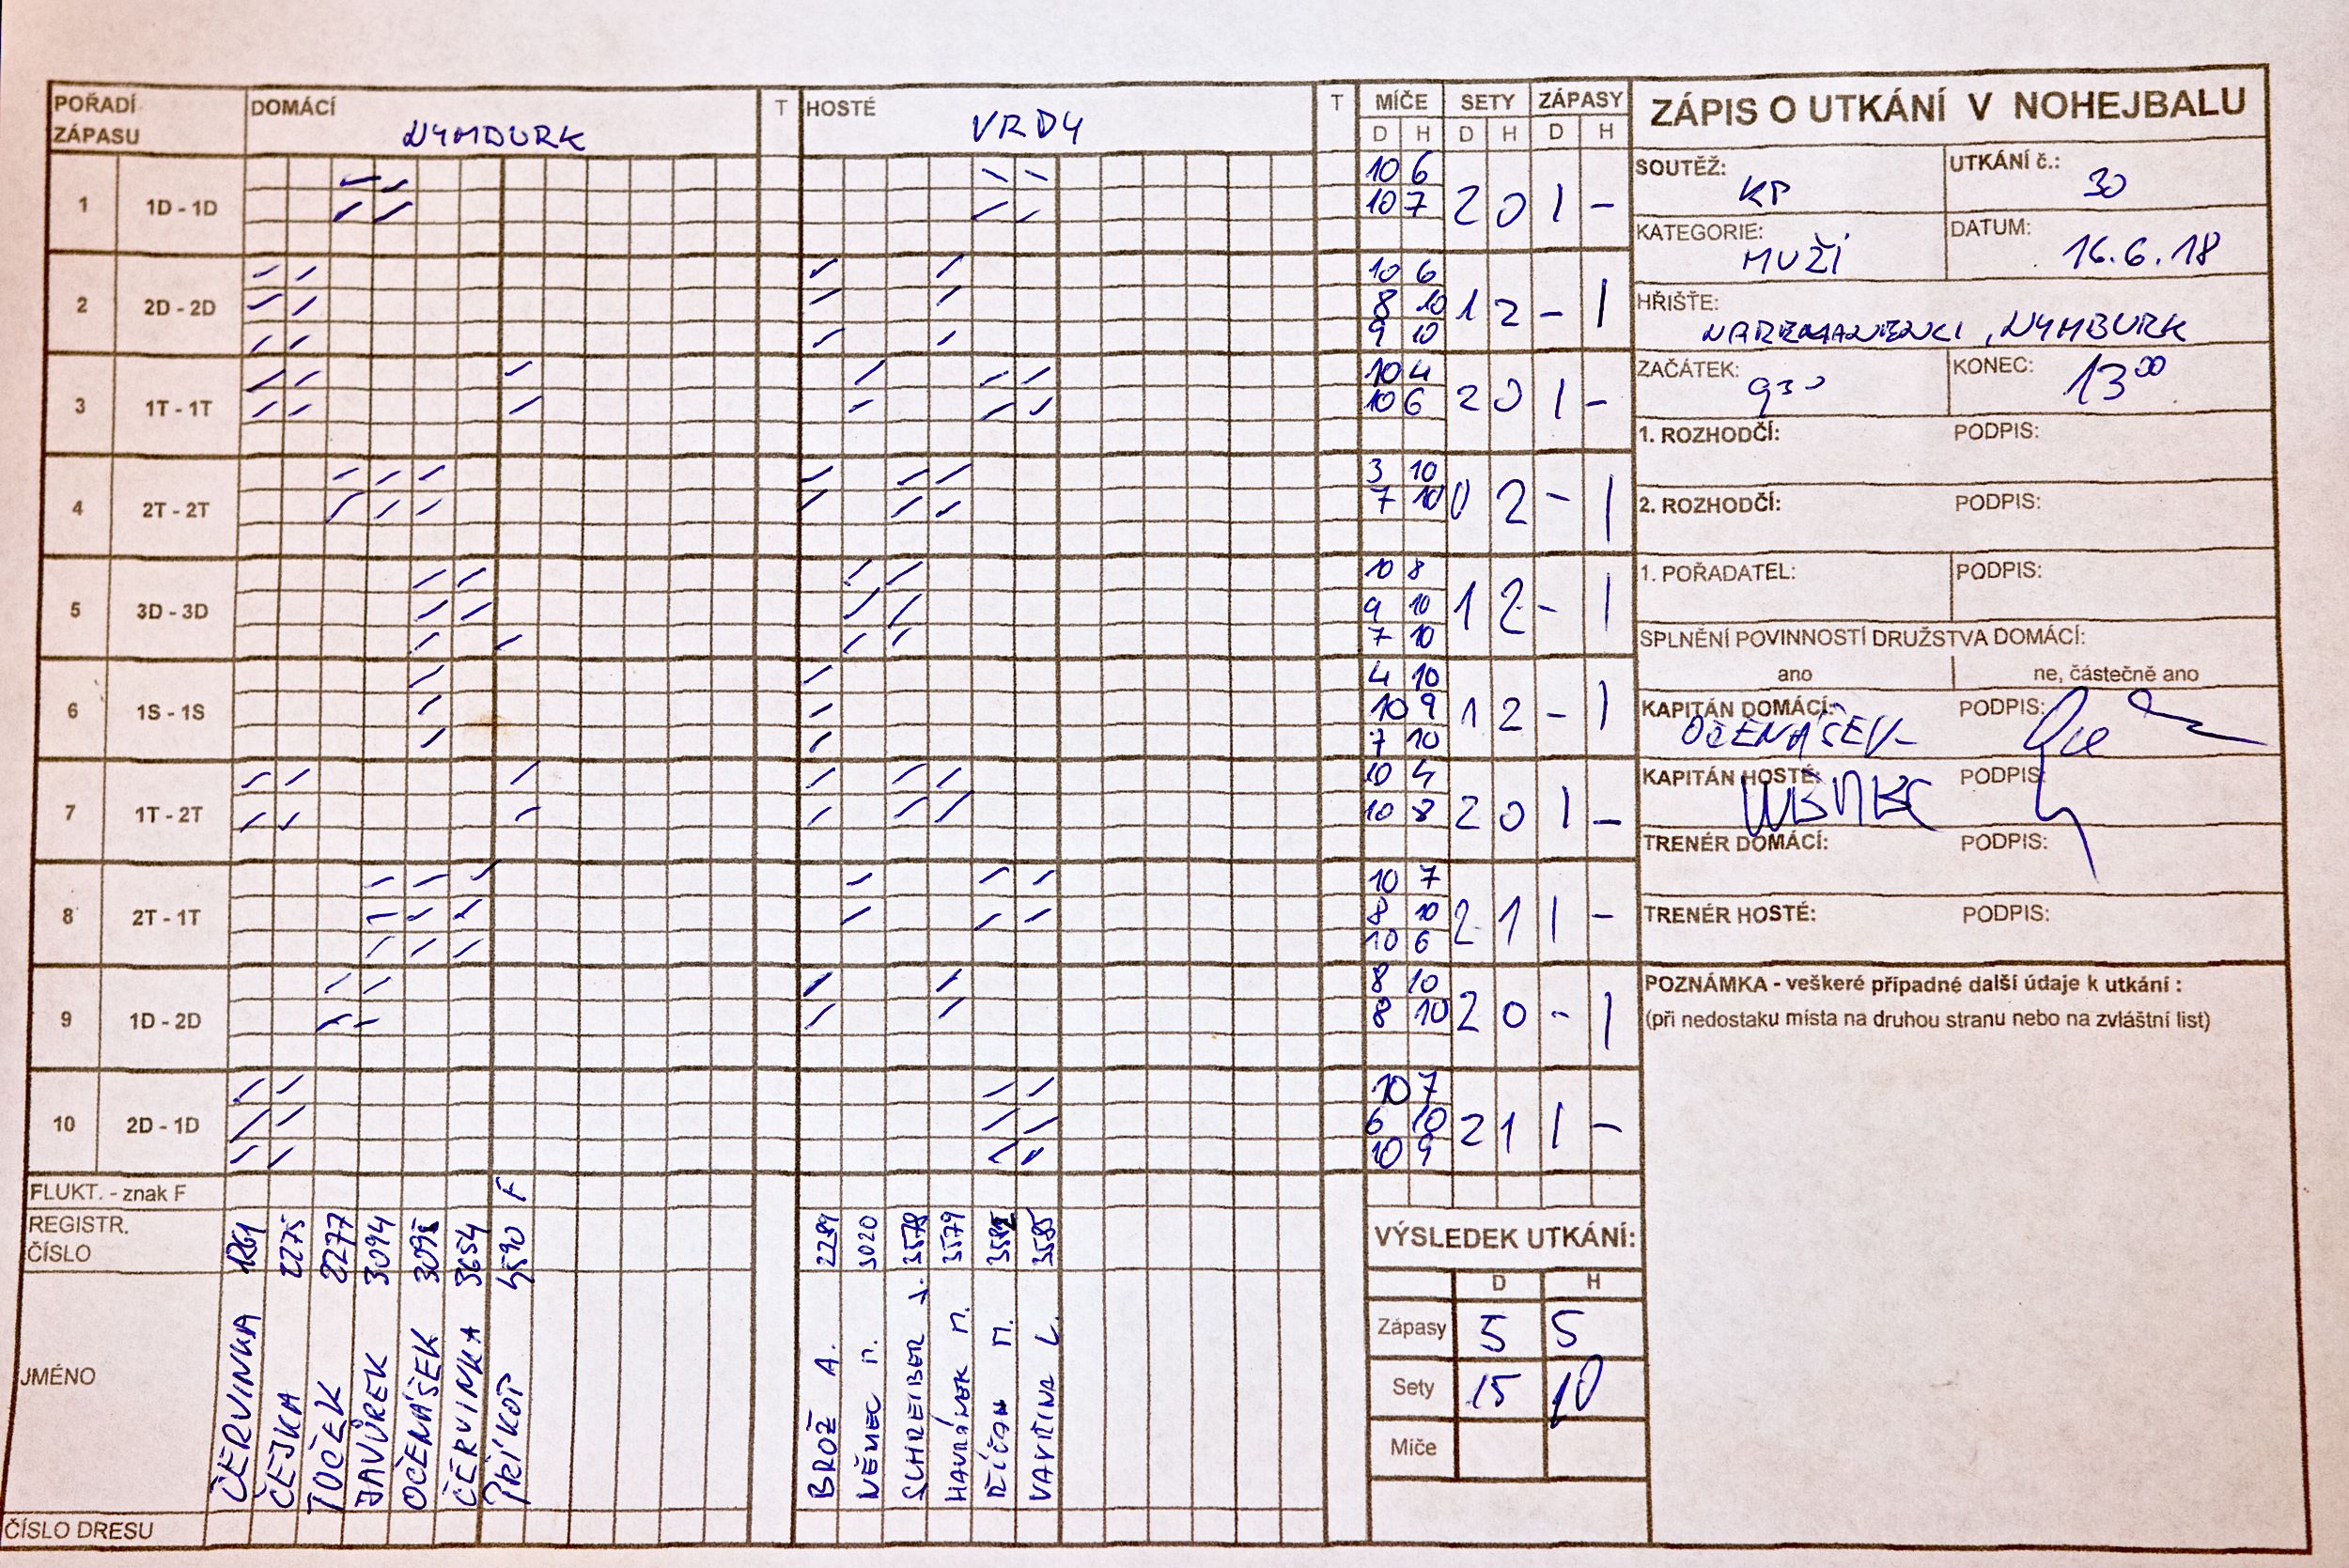 POŘADÍ ZÁPASU DOMÁCÍ NYMBURK T HOSTÉ VRDY T MÍČE SETY ZÁPASY
D H D H D H
1 1D - 1D 10 6 2 0 1 -
10 7
2 2D - 2D 10 6 1 2 - 1
8 10
9 10
3 1T - 1T 10 4 2 0 1 -
10 6
4 2T - 2T 3 10 0 2 - 1
7 10
5 3D - 3D 10 8 1 2 - 1
9 10
7 10
6 1S - 1S 4 10 1 2 - 1
10 9
7 10
7 1T - 2T 10 4 2 0 1 -
10 8
8 2T - 1T 10 7 2 1 1 -
8 10
10 6
9 1D - 2D 8 10 2 0 - 1
8 10
10 2D - 1D 10 7 2 1 1 -
6 10
10 9
FLUKT. - znak F F
REGISTR. ČÍSLO 2275 2277 3094 3654 2289 3020 3578 3579 3585
JMÉNO ČERVINKA ČEJKA TOČEK JAVŮREK OČENÁŠEK ČERVINKA PŘÍKOP BROŽ A. NĚMEC M. SCHREIBER J. HAVRÁNEK M. ŘÍČAN M. VAVŘINA L.
ČÍSLO DRESU
VÝSLEDEK UTKÁNÍ:
D H
Zápasy 5 5
Sety 15 10
Míče
ZÁPIS O UTKÁNÍ V NOHEJBALU
SOUTĚŽ: KP UTKÁNÍ č.: 30
KATEGORIE: MUŽI DATUM: 16.6.18
HŘIŠTĚ: , NYMBURK
ZAČÁTEK: 9 30 KONEC: 13 00
1. ROZHODČÍ: PODPIS:
2. ROZHODČÍ: PODPIS:
1. POŘADATEL: PODPIS:
SPLNĚNÍ POVINNOSTÍ DRUŽSTVA DOMÁCÍ:
ano ne, částečně ano
KAPITÁN DOMÁCÍ: OČENÁŠEK PODPIS:
KAPITÁN HOSTÉ: PODPIS:
TRENÉR DOMÁCÍ: PODPIS:
TRENÉR HOSTÉ: PODPIS:
POZNÁMKA - veškeré případné další údaje k utkání :
(při nedostaku místa na druhou stranu nebo na zvláštní list)